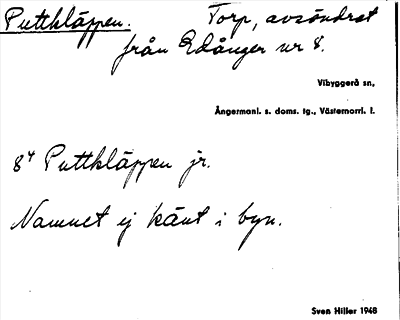 Puttkläppen. Torp, avsöndrat
från Edånger nr 8.
Vibyggerå sn,
Ångermanl. s. doms. tg., Västernorrl. l.
8⁴ Puttkläppen jr.
Namnet ej känt i byn.
Sven Hiller 1948